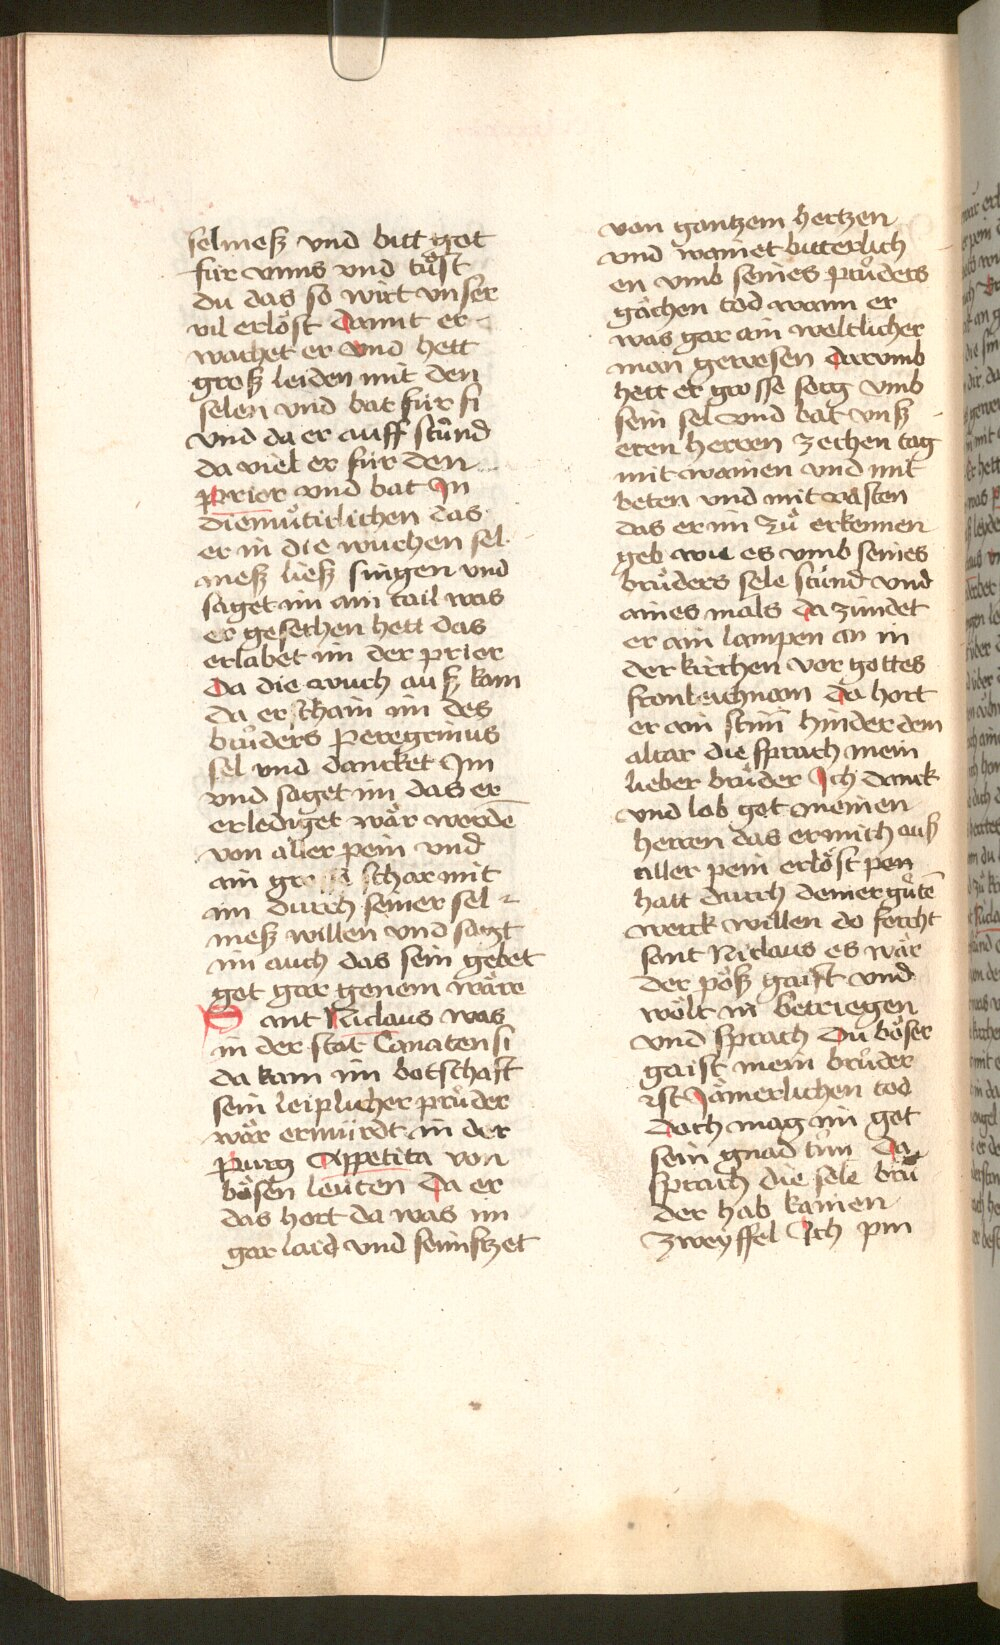 selmeß vnd bitt got
für vnns vnd tuͦst
du das so wirt vnser
vil erlöst Damit er-
wachet er Vnd hett
groß leiden mit den
selen vnd bat für si
Vnd da er auff stuͦnd
da viel er für den
Prior vnd bat In
diemuͤtiklichen das
er in die wuchen sel-
meß ließ singen vnd
saget im ain tail was
er gesechen hett das
erlabet im der prior
Da die wuch auß kam
da erschain im des
bruͦders Peregrinus
sel vnd dancket Im
vnd saget im das er
erlediget wär wordē
von aller pein vnd
ain grosse schar mit
im durch seiner sel-
meß willen vnd sagt
im auch das sein gebet
got gar genem wäre
Sant Niclaus was
in der stat Canatensi
da kam im botschaft
sein leiplicher pruͦder
wär ermürdt in der
Purg Appetita von
bösen leüten Da er
das hort da was im
gar laid vnd seünfzet
von gantzem hertzen
vnd wainet bitterlich
en vmb seines pruͦders
gächen tod wann er
was gar ain weltlicher
man gewesen Darvmb
hett er grosse sorg vmb
sein sel vnd bat vnß
eren herren zechen tag
mit wainen vnd mit
beten vnd mit vasten
das er im zuͦ erkennen
geb wie es vmb seines
bruͦders sele stuͦnd vnd
aines mals da zündet
er ain lampen an in
der kirchen vor gottes
fronleichnam Da hort
er ain stim̄ hinder dem
altar die sprach mein
lieber bruͦder Ich danck
vnd lob got meinen
herren das er mich auß
aller pein erlöst pen
hatt durch deiner guͤtē
werck willen do forcht
sant Niclaus es wär
der pöß gaist vnd
wölt in betriegen
vnd sprach Du böser
gaist mein bruͦder
ist Jämerlichen tod
Doch mag im got
sein gnad tuͦn Da
sprach die sele bruͦ
der hab kainen
zweyffel Ich pin